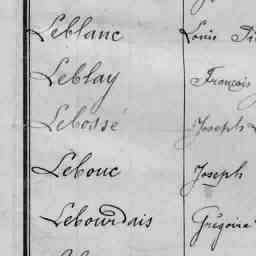 Leblanc Louis
Leblay François
Lebossé Joseph
Lebouc Joseph
Lebourdais Grégoire